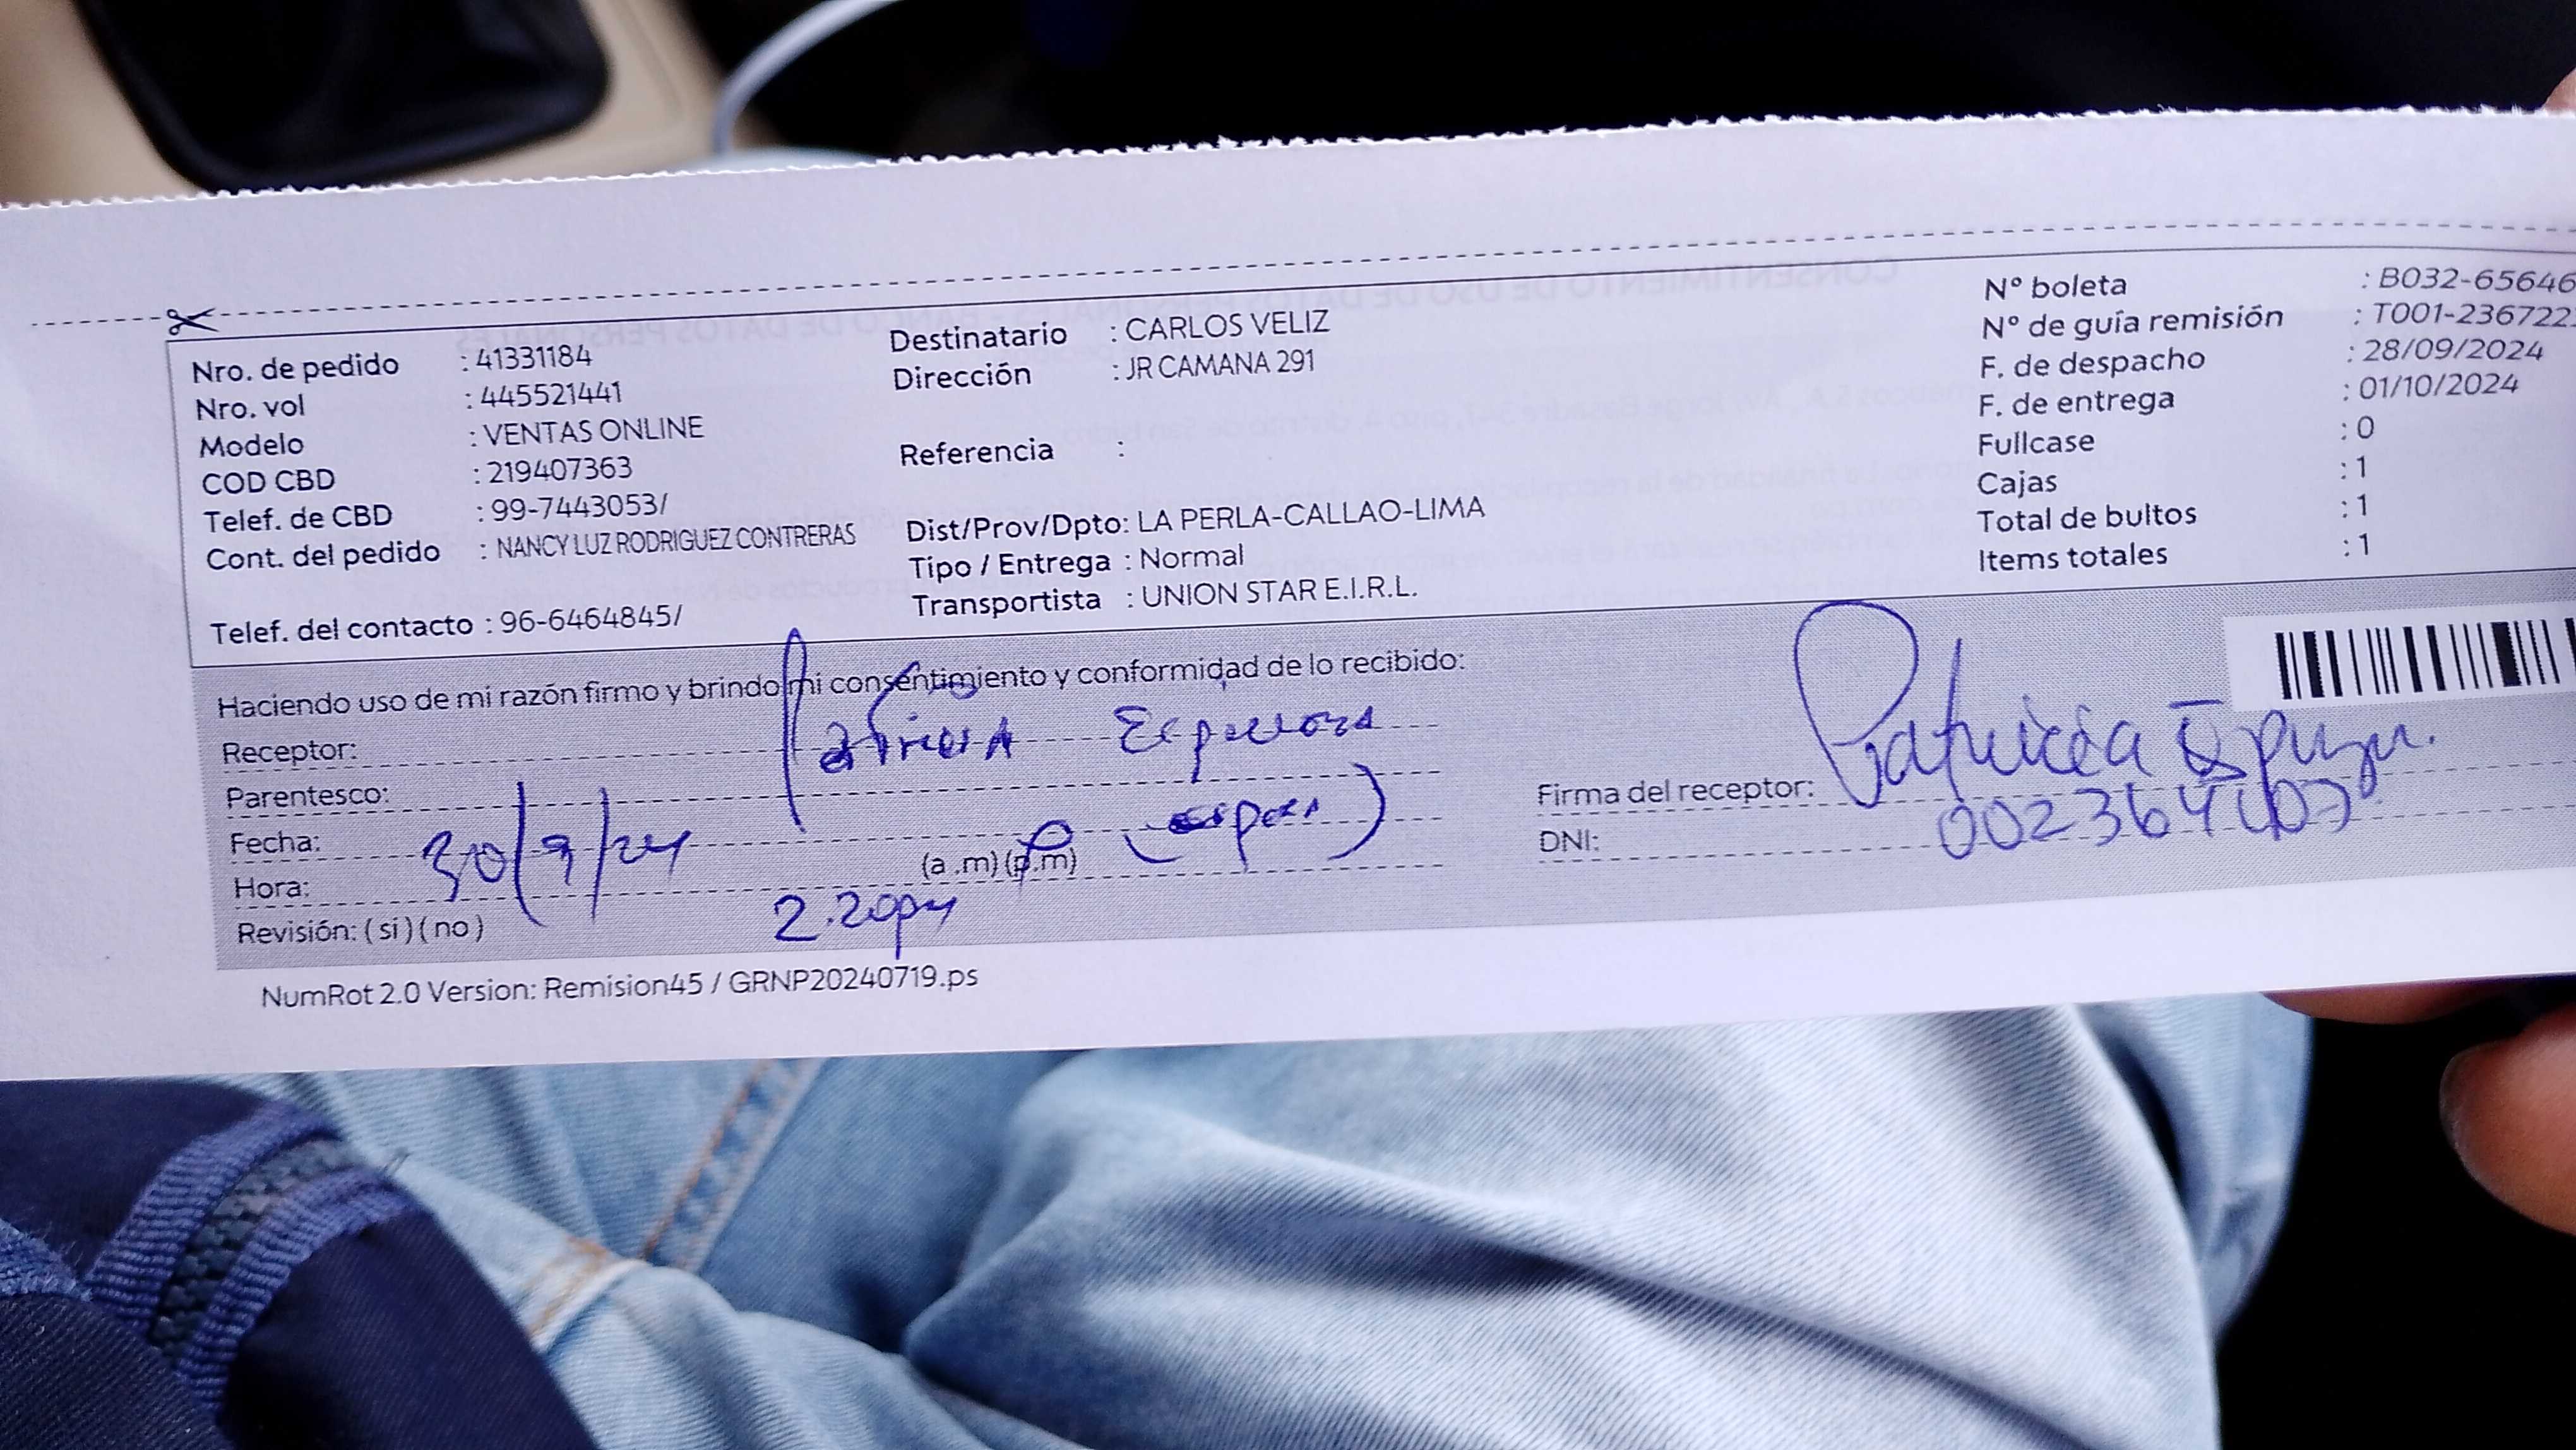 Nro. de pedido : 41331184
Nro. vol : 445521441
Modelo : VENTAS ONLINE
COD CBD : 219407363
Telef. de CBD : 99-7443053/
Cont. del pedido : NANCY LUZ RODRIGUEZ CONTRERAS
Telef. del contacto : 96-6464845/
Destinatario : CARLOS VELIZ
Dirección : JR CAMANA 291
Referencia :
Dist/Prov/Dpto: LA PERLA-CALLAO-LIMA
Tipo / Entrega : Normal
Transportista : UNION STAR E.I.R.L.
N° boleta : B032-65646
N° de guía remisión : T001-236722
F. de despacho : 28/09/2024
F. de entrega : 01/10/2024
Fullcase : 0
Cajas : 1
Total de bultos : 1
Items totales : 1
Haciendo uso de mi razón firmo y brindo mi consentimiento y conformidad de lo recibido:
Receptor: Patricia Espinoza
Parentesco: (esposa)
Fecha: 30/9/24
Hora: 2.20pm (a .m) (p.m)
Revisión: ( si ) ( no )
Firma del receptor: Patricia
DNI:
NumRot 2.0 Version: Remision45 / GRNP20240719.ps